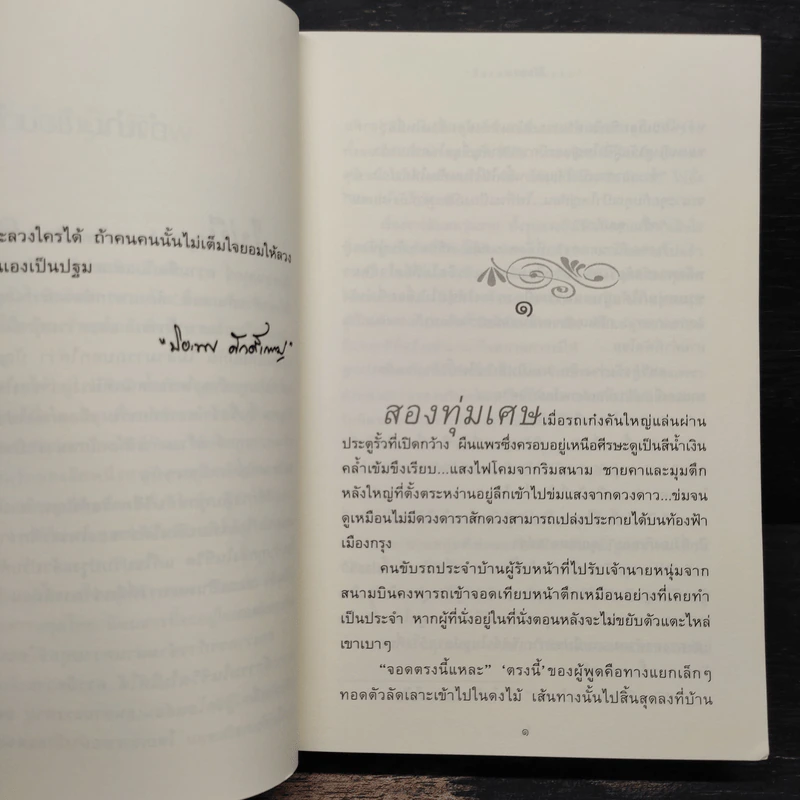 ะลวงใครได้ ถ้าคนคนนั้นไม่เต็มใจยอมให้ลวง
นเองเป็นปฐม
๑
สองทุ่มเศษ เมื่อรถเก๋งคันใหญ่แล่นผ่าน
ประตูรั้วที่เปิดกว้าง ผืนแพรซึ่งครอบอยู่เหนือศีรษะดูเป็นสีน้ำเงิน
คล้ำเข้มขึงเรียบ...แสงไฟโคมจากริมสนาม ชายคาและมุมตึก
หลังใหญ่ที่ตั้งตระหง่านอยู่ลึกเข้าไปข่มแสงจากดวงดาว...ข่มจน
ดูเหมือนไม่มีดวงดาราสักดวงสามารถเปล่งประกายได้บนท้องฟ้า
เมืองกรุง
คนขับรถประจำบ้านผู้รับหน้าที่ไปรับเจ้านายหนุ่มจาก
สนามบินคงพารถเข้าจอดเทียบหน้าตึกเหมือนอย่างที่เคยทำ
เป็นประจำ หากผู้ที่นั่งอยู่ในที่นั่งตอนหลังจะไม่ขยับตัวแตะไหล่
เขาเบาๆ
“จอดตรงนี้แหละ” ‘ตรงนี้’ ของผู้พูดคือทางแยกเล็กๆ
ทอดตัวลัดเลาะเข้าไปในดงไม้ เส้นทางนั้นไปสิ้นสุดลงที่บ้าน
๑